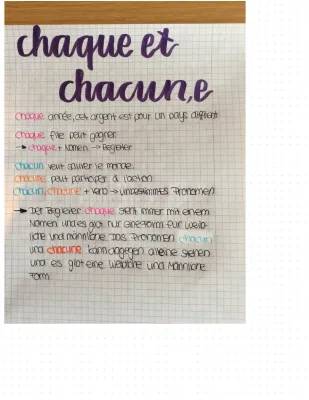 chaque et
chacun,e
chaque année, cet argent est pour un pays différent
chaque fille peut gagner
→ chaque + Nomen → Begleiter
chacun veut sauver le monde.
chacune peut participer à l'action
chacun, chacune + Verb → unbestimmtes Pronomen
→ Der Begleiter chaque steht immer mit einem
Nomen und es gibt nur eine Form für weib-
liche und männliche. Das Pronomen chacun
und chacune kann dagegen alleine stehen
und es gibt eine weibliche und männliche
Form.